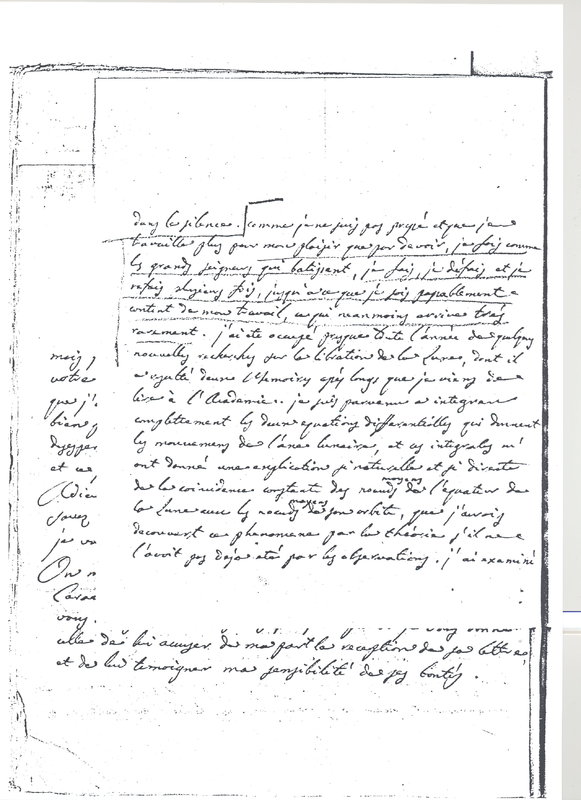 dans le silence. comme je ne suis pas pressé et que je
travaille plus pour mon plaisir que par devoir, je fais comme
les grands seigneurs qui batissent, je fais, je défais et je
refais plusieurs fois, jusqu'à ce que je sois passablement
content de mon travail, ce qui neanmoins arrive tres
rarement. j'ai été occupé presque toute l'année de quelques
nouvelles recherches sur la libration de la Lune, dont il
a resulté deux Memoires assés longs que je viens de
lire à l'Academie. je suis parvenu a integrer
complettement les deux equations differentielles qui donnent
les mouvemens de l'axe lunaire, et ces integrales m'
ont donné une explication si naturelle et si directe
de la coincidence constante des noeuds moyens de l'equateur de
la Lune avec les noeuds moyens de son orbite, que j'aurois
decouvert ce phenomene par la théorie s'il ne
l'avoit pas deja été par les observations. j'ai examiné
mois
votre
que j'
bien
et ce
Adieu
soyez
je
On
vous.
elle de lui accuser de ma part la reception de sa lettre,
et de lui temoigner ma sensibilité de ses bontés.